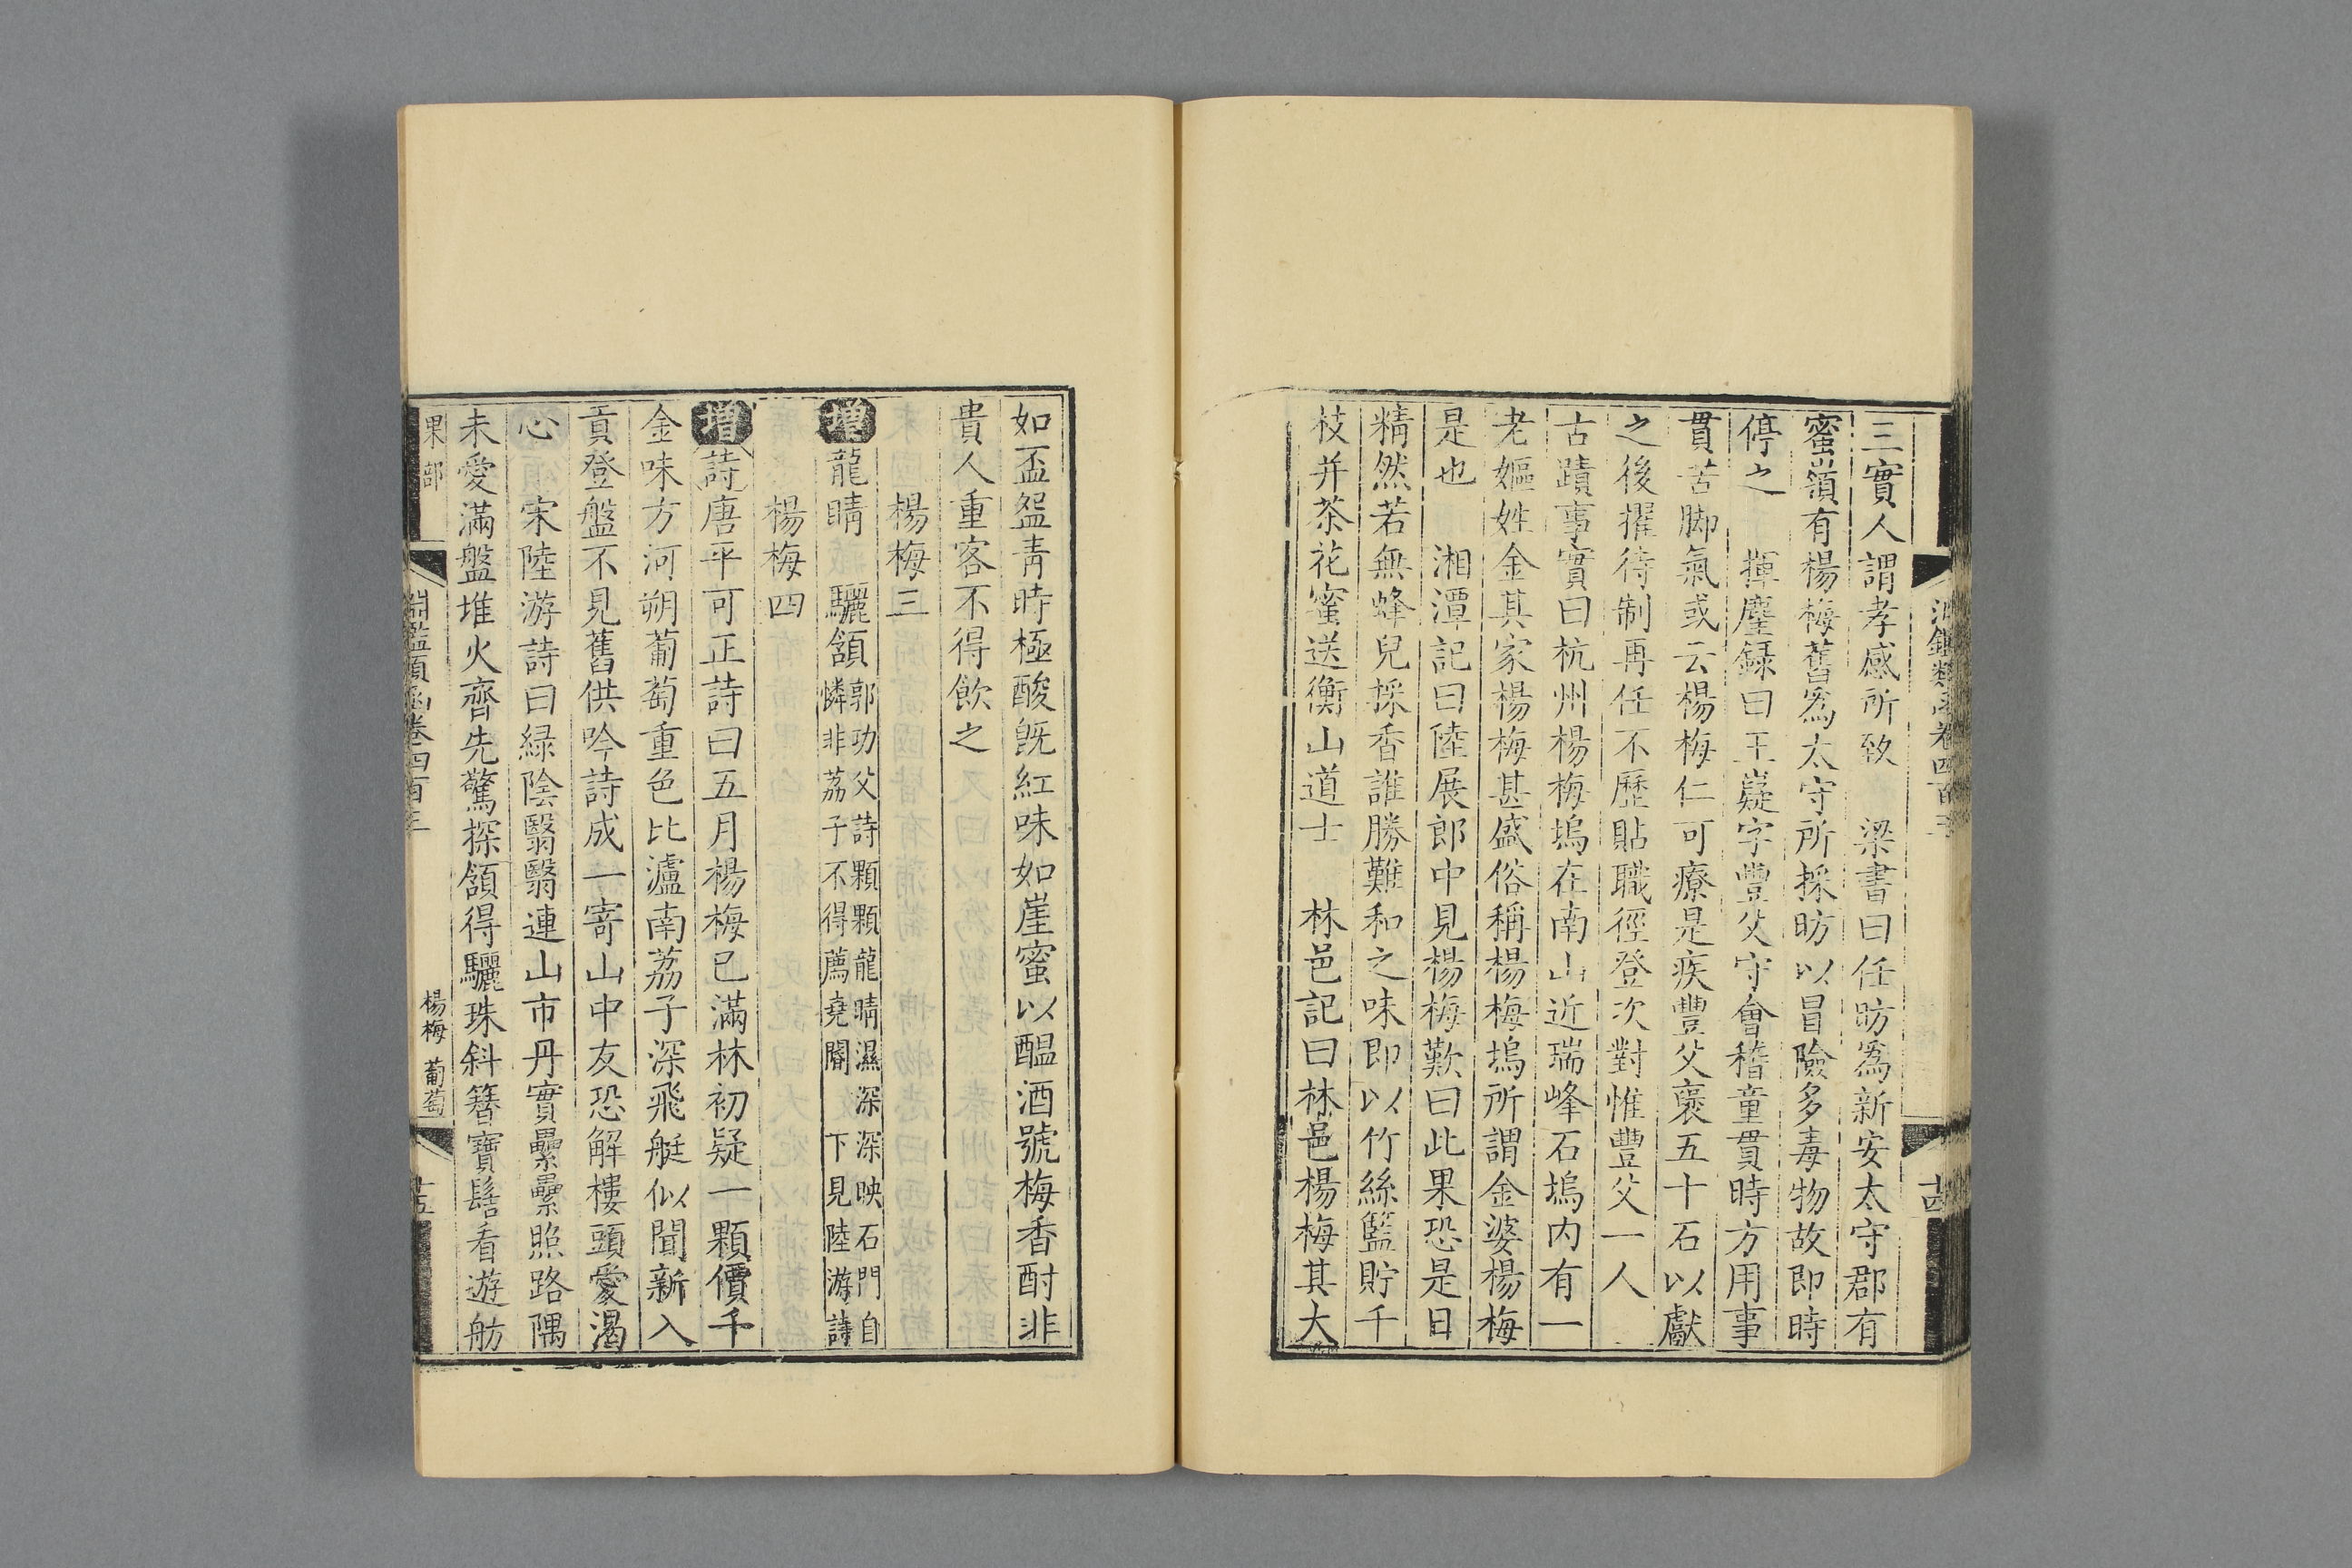 淵鑑類函卷四百三
十四
三實人謂孝感所致　梁書曰任昉爲新安太守郡有
蜜嶺有楊梅舊爲太守所採昉以冒險多毒物故即時
停之　揮麈録曰王嶷字豐父守會稽童貫時方用事
貫苦脚氣或云楊梅仁可療是疾豐父裒五十石以獻
之後擢待制再任不歷貼職徑登次對惟豐父一人
古蹟事實曰杭州楊梅塢在南山近瑞峰石塢内有一
老嫗姓金其家楊梅甚盛俗稱楊梅塢所謂金婆楊梅
是也　湘潭記曰陸展郎中見楊梅歎曰此果恐是日
精然若無蜂兒採香誰勝難和之味即以竹絲籃貯千
枝并茶花蜜送衡山道士　林邑記曰林邑楊梅其大
如盃盌青時極酸既紅味如崖蜜以醖酒號梅香酎非
貴人重客不得飲之
楊梅三
增龍睛　驪頷郭功父詩顆顆龍睛濕深深映石門自
憐非荔子不得薦堯閽　下見陸游詩
楊梅四
增詩唐平可正詩曰五月楊梅已滿林初疑一顆價千
金味方河朔葡萄重色比瀘南荔子深飛艇似聞新入
貢登盤不見舊供吟詩成一寄山中友恐解樓頭愛渴
心　宋陸游詩曰緑陰翳翳連山市丹實纍纍照路隅
未愛滿盤堆火齊先驚探頷得驪珠斜簪寶髻看遊舫
果部
淵鑑類函卷四百三
楊梅　葡萄
十五